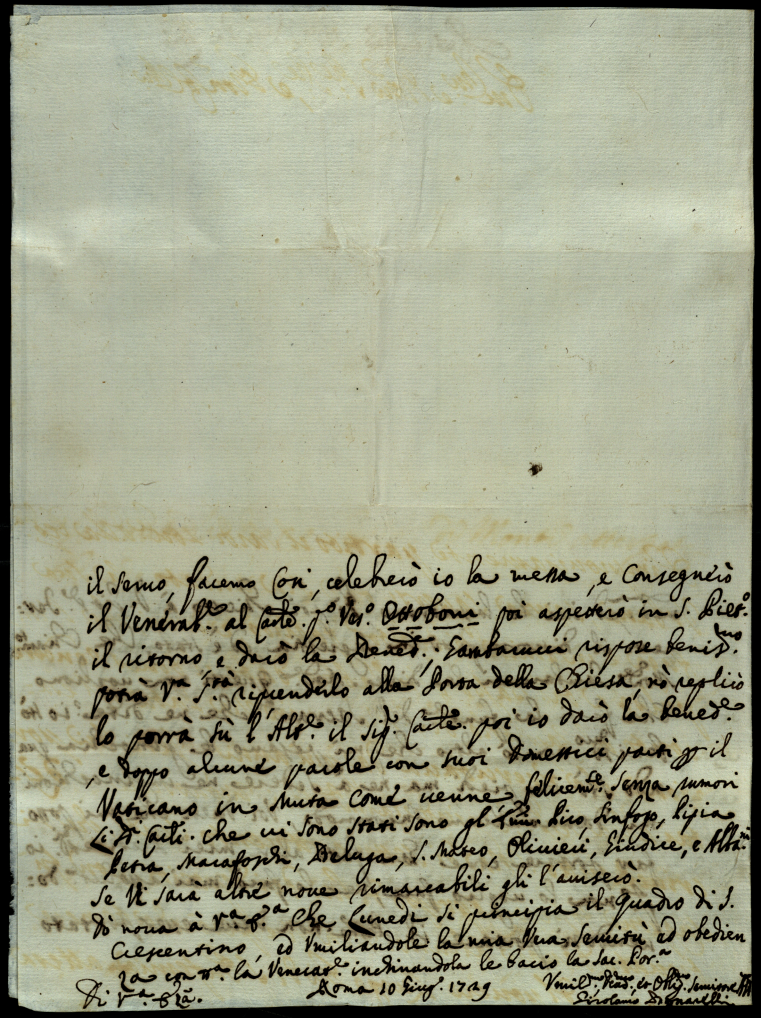 il servo, facemo Così, celebrerò io la messa, e Consegnerò
il Venerab.e al Carle. p.o Ves.o Ottoboni poi aspetterò in S. Piet.o
il ritorno e darò la Bened.e, Gambarucci rispose benis.mo
potrà V.a S.tà riprenderlo alla Porta della Chiesa, nò replicò
lo porrà sù l'Alt.e il Sig.r Carle. poi io darò la bened.e
, e doppo alcune parole con suoi Domestici partì p il
Vaticano in Muta come venne felicem.te senza rumori
Li SS.ri Carli. che vi sono stati sono gl'Emi. Pico, Sinfogo, Pipia
Petra, Marafoschi, Deluga, S. Mateo, Olivieri, Giudice, e Alba.ni
Se Vi sarà altre nove rimarcabili gli l'aviserò.
di nova à V.a che Lunedì si principia il Quadro di S.
Crescentino, ed Umiliandole la mia Vera Servitù ed obedien
za con la inchinandola le bacio la Sac. Por.a
Di V.a
Roma 10 Giug.o 1729
Umil.mo ed Obl.mo Servitore
Girolamo